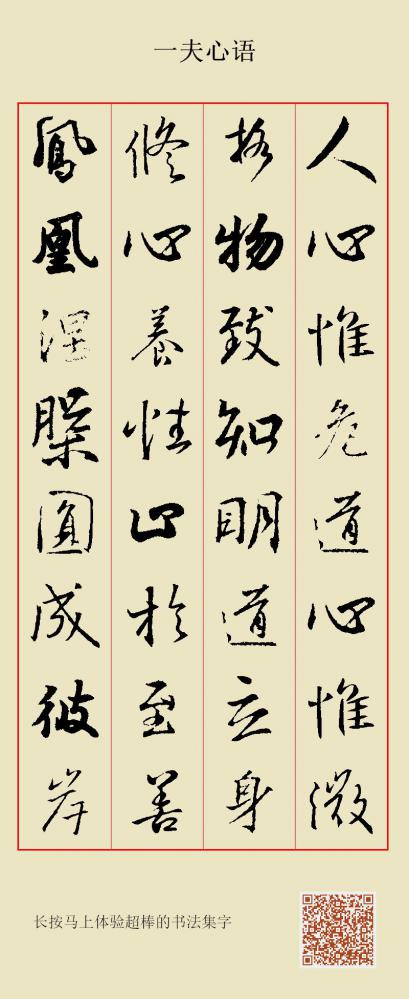 一夫心语
人心惟危道心惟微
格物致知明道立身
修心養性止於至善
鳳凰涅槃圓成彼岸
长按马上体验超棒的书法集字